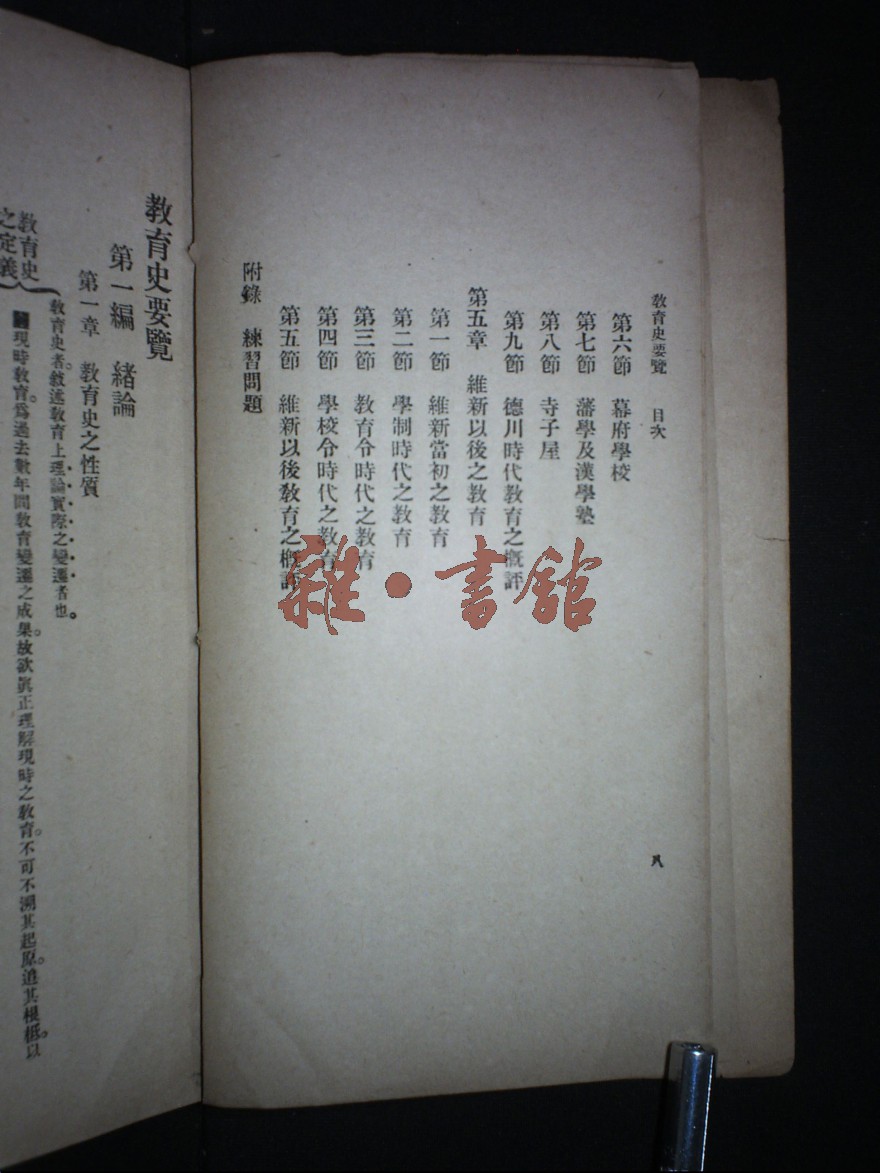 教育史要覽　目次
第六節　幕府學校
第七節　藩學及漢學塾
第八節　寺子屋
第九節　德川時代教育之概評
第五章　維新以後之教育
第一節　維新當初之教育
第二節　學制時代之教育
第三節　教育令時代之教育
第四節　學校令時代之教育
第五節　維新以後教育之概評
附錄　練習問題
八
雜·書館
教育史要覽
第一編　緒論
第一章　教育史之性質
教育史者。敘述教育上理論實際之變遷者也。
教育史
之定義
現時教育。爲過去數年間教育變遷之成果。故欲眞正理解現時之教育。不可不溯其起原。進其根柢。以